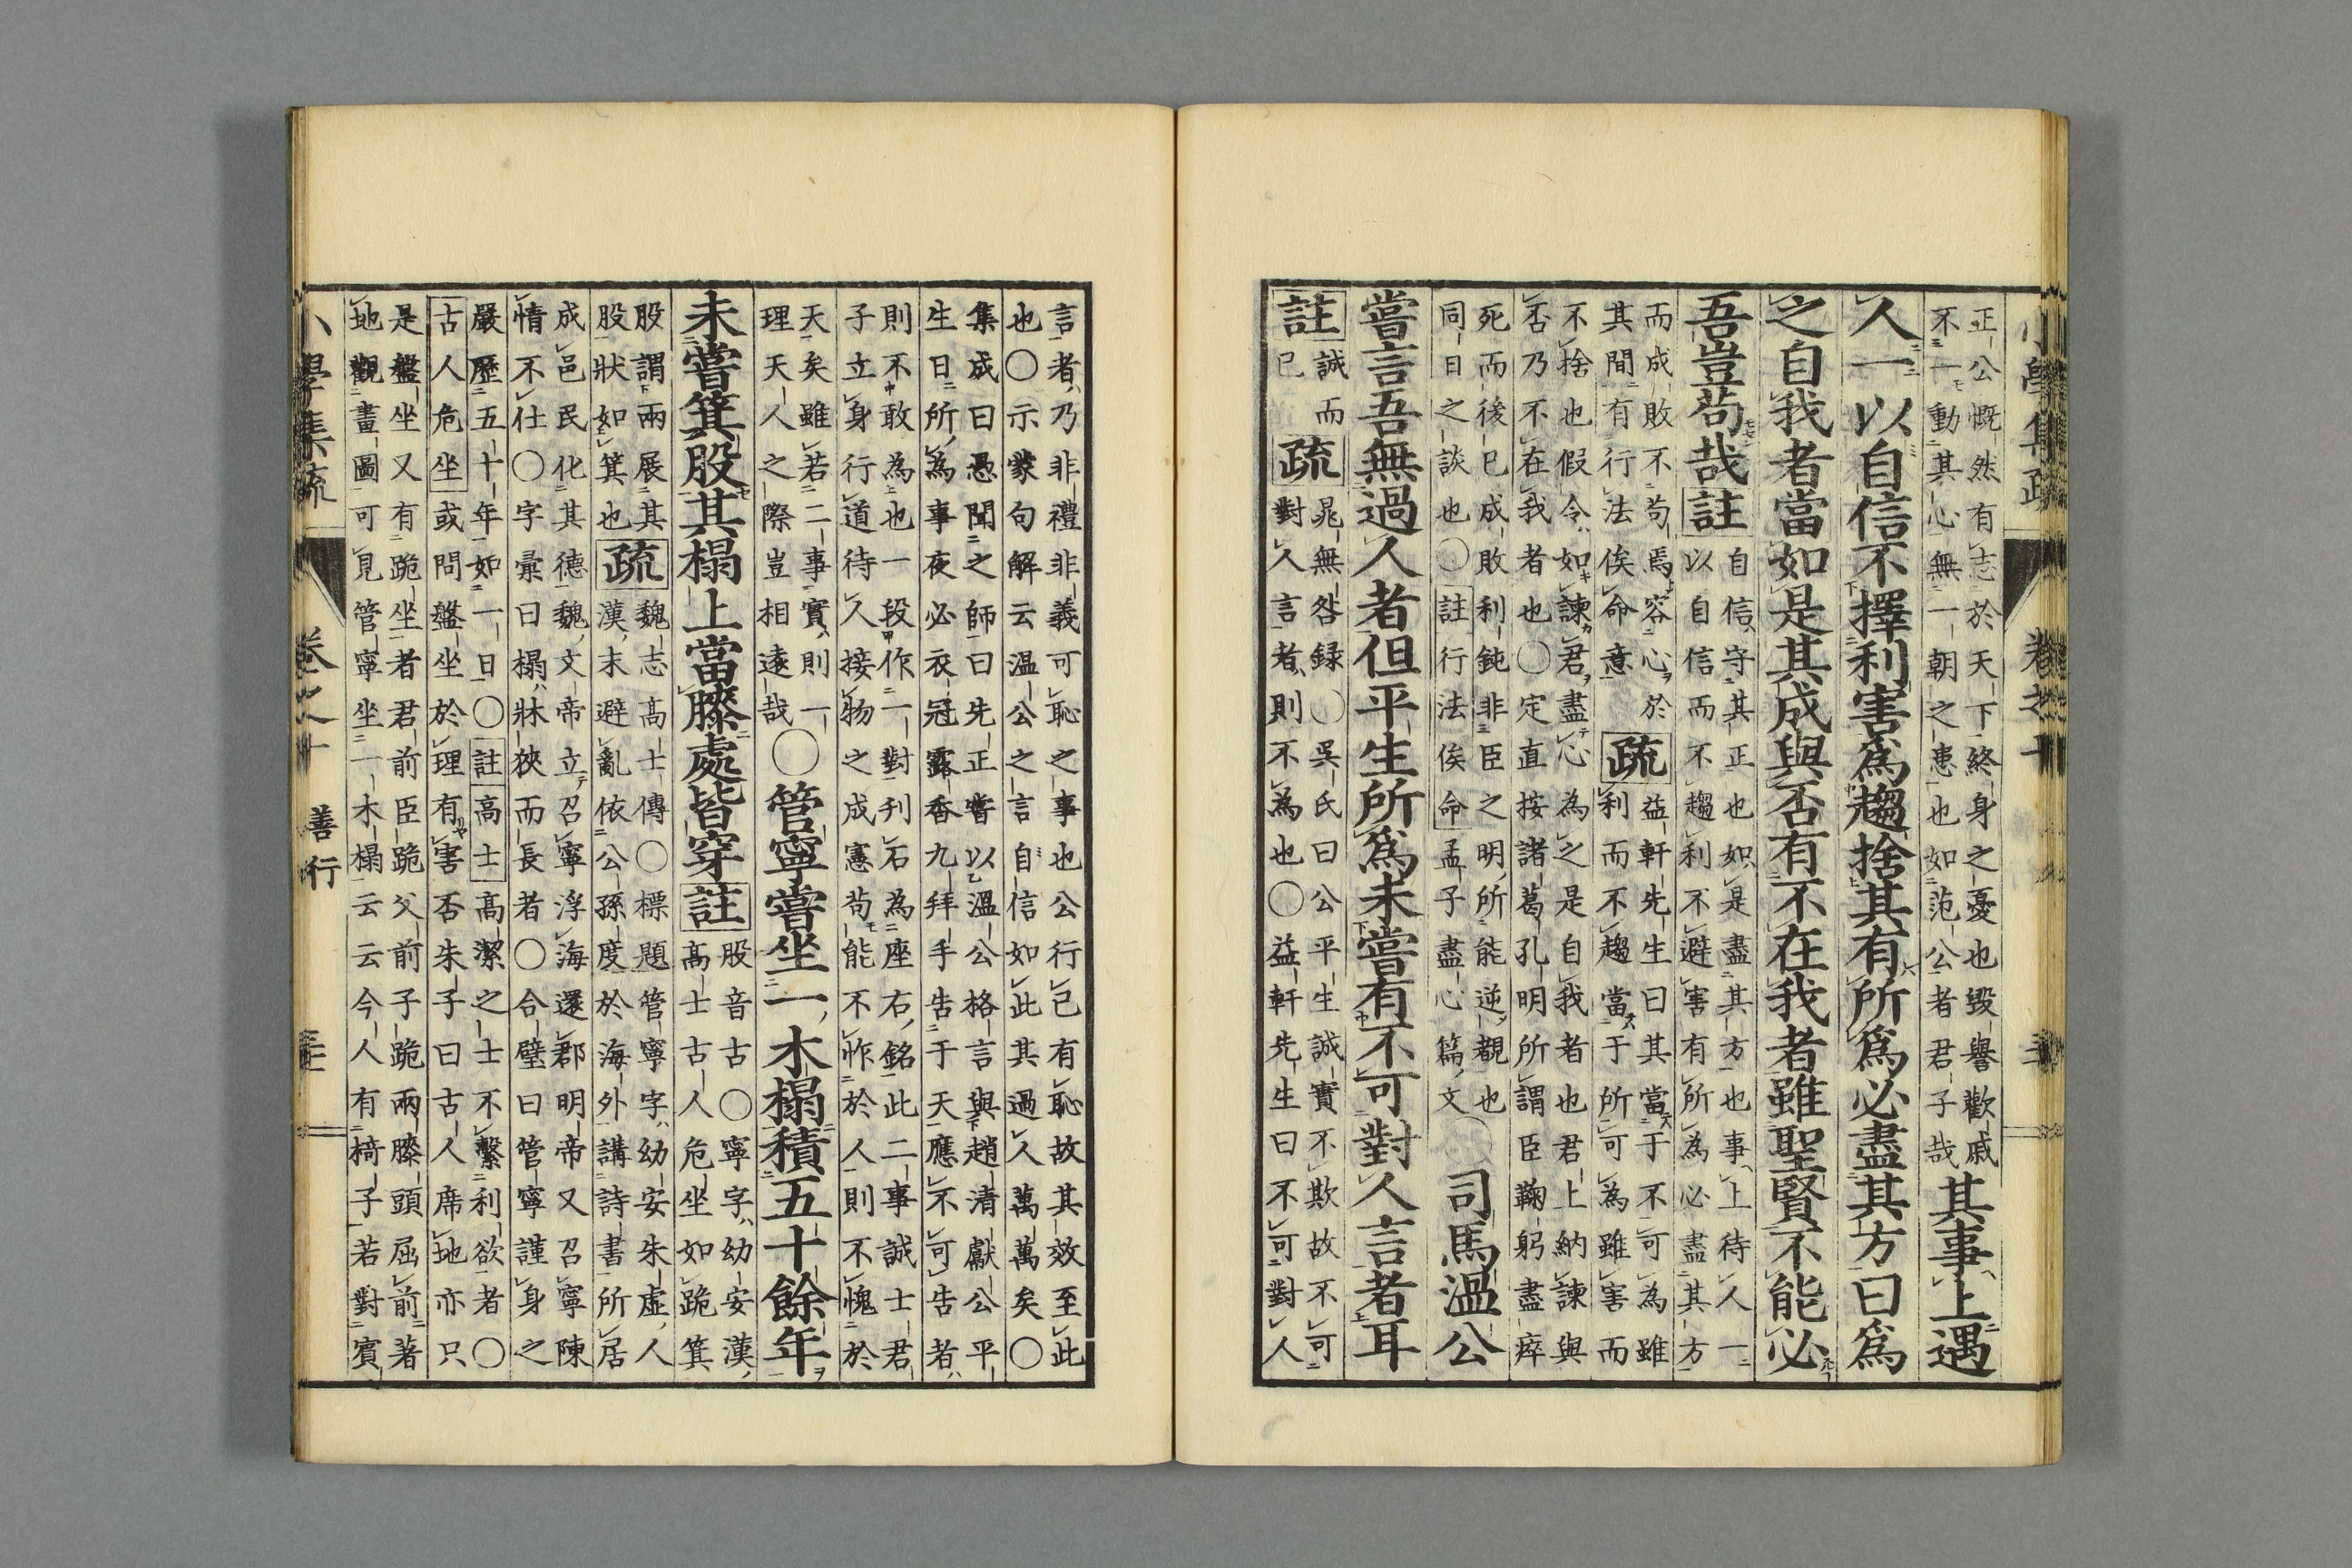 正公慨然有志於天下終身之憂也毀譽歡戚
不一動其心無一朝之患也如范公者君子哉
其事上遇
人一以自信不擇利害爲趨捨其有所爲必盡其方曰爲
之自我者當如是其成與否有不在我者雖聖賢不能必
吾豈苟哉註
自信守其正也如是盡其方也事上待人一
以自信而不趨利不避害有所為必盡其方
而成敗不苟焉容心於
其間有行法俟命意
疏
益軒先生曰其當于不可為雖
利而不趨當于所可為雖害而
不捨也假令如諫君盡心為之是自我者也君上納諫與
否乃不在我者也〇定直按諸葛孔明所謂臣鞠躬盡瘁
死而後已成敗利鈍非臣之明所能逆覩也
同日之談也〇註行法俟命孟子盡心篇文
〇司馬溫公
嘗言吾無過人者但平生所爲未嘗有不可對人言者耳
註
誠而
已
疏
晁無咎録〇吳氏曰公平生誠實不欺故不可
對人言者則不為也〇益軒先生曰不可對人
言者乃非禮非義可恥之事也公行已有恥故其效至此
也〇示蒙句解云溫公之言自信如此其過人萬萬矣〇
集成曰愚聞之師曰先正嘗以溫公格言與趙清獻公平
生日所為事夜必衣冠露香九拜手告于天應不可告者
則不敢為也一段作一對刋石為座右銘此二事誠士君
子立身行道待人接物之成憲苟能不怍於人則不愧於
天矣雖若二事實則一
理天人之際豈相遠哉
〇管寧嘗坐一木榻積五十餘年
未嘗箕股其榻上當膝處皆穿註
股音古〇寧字幼安漢
高士古人危坐如跪箕
股謂兩展其
股狀如箕也
疏
魏志高士傳〇標題管寧字幼安朱虛人
漢末避亂依公孫度於海外講詩書所居
成邑民化其德魏文帝立召寧浮海還郡明帝又召寧陳
情不仕〇字彙曰榻牀狹而長者〇合璧曰管寧謹身之
嚴歷五十年如一日〇註高士高潔之士不繫利欲者〇
古人危坐或問盤坐於理有害否朱子曰古人席地亦只
是盤坐又有跪坐者君前臣跪父前子跪兩膝頭屈前著
地觀畫圖可見管寧坐一木榻云云今人有椅子若對賓
小學集疏 卷之十 善行